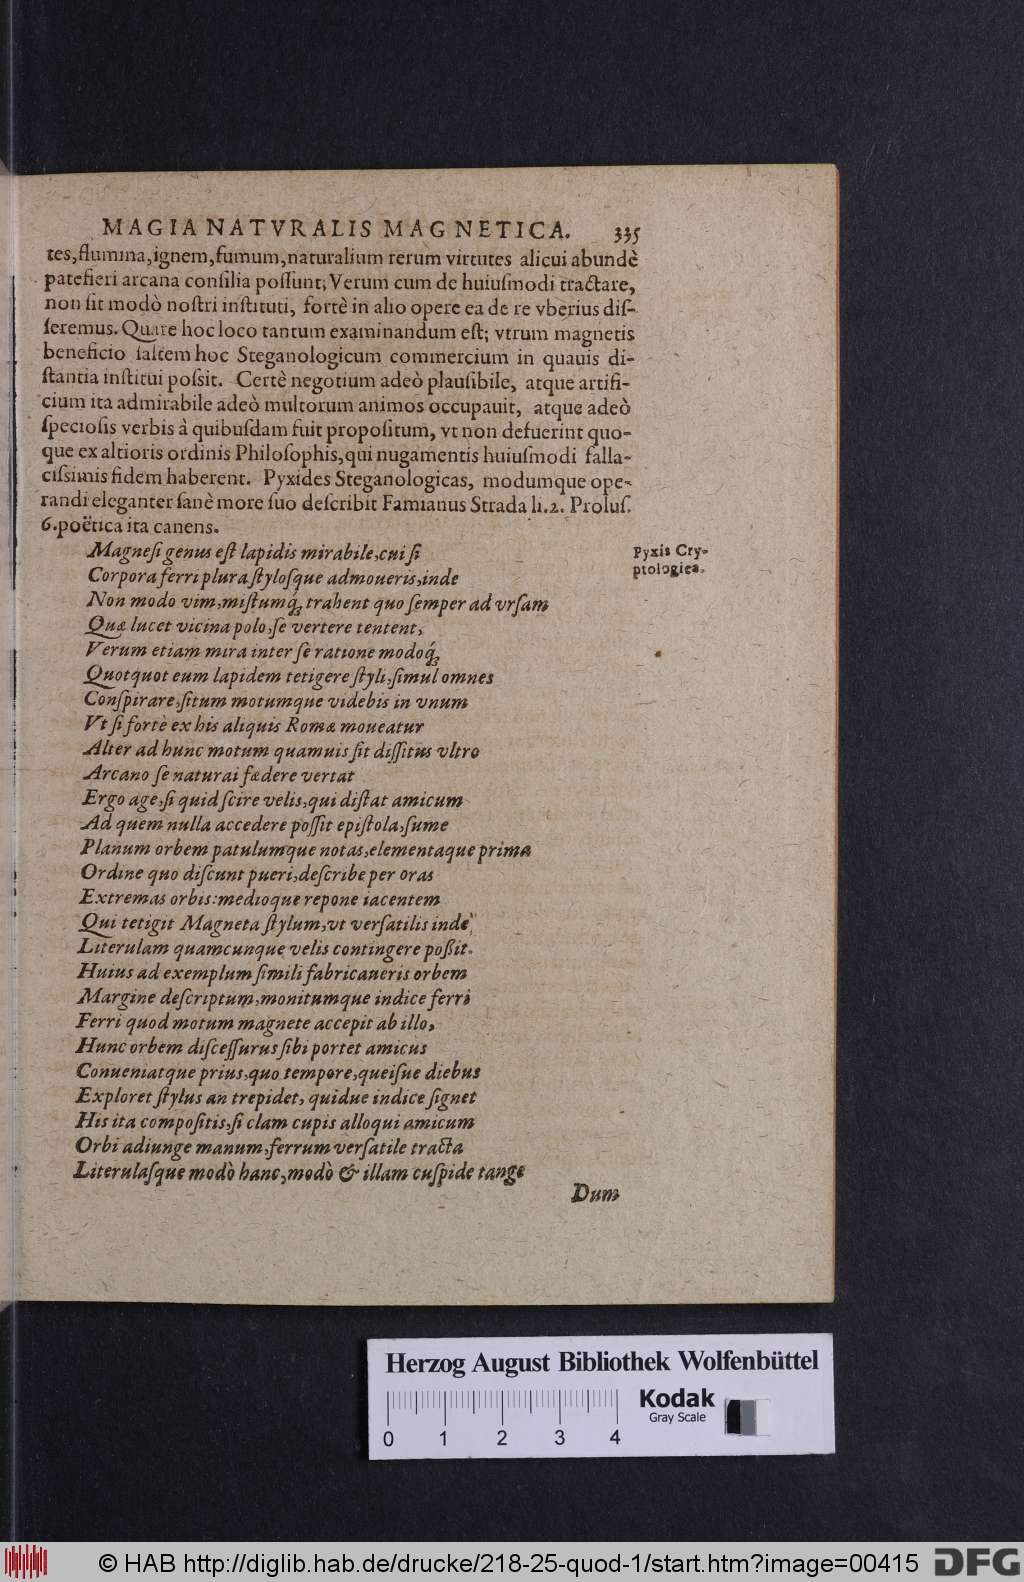 MAGIA NATVRALIS MAGNETICA. 335
tes, flumina, ignem, fumum, naturalium rerum virtutes alicui abundè
patefieri arcana consilia possunt; Verum cum de huiuſmodi tractare,
non ſit modò noſtri inſtituti, fortè in alio opere ea de re vberius diſ-
ſeremus. Quare hoc loco tantum examinandum eſt; vtrum magnetis
beneficio ſaltem hoc Steganologicum commercium in quauis di-
ſtantia inſtitui poſsit. Certè negotium adeò plauſibile, atque artifi-
cium ita admirabile adeò multorum animos occupauit, atque adeò
ſpecioſis verbis à quibuſdam fuit propoſitum, vt non defuerint quo-
que ex altioris ordinis Philoſophis, qui nugamentis huiuſmodi falla-
ciſsimis fidem haberent. Pyxides Steganologicas, modumque ope-
randi eleganter ſanè more ſuo deſcribit Famianus Strada li. 2. Proluſ.
6. poëtica ita canens.
Pyxis Cry-
ptologica.
Magneſi genus eſt lapidis mirabile, cui ſi
Corpora ferri plura ſtyloſque admoueris, inde
Non modo vim, miſtumq́; trahent quo ſemper ad vrſam
Quæ lucet vicina polo, ſe vertere tentent,
Verum etiam mira inter ſè ratione modoq́;
Quotquot eum lapidem tetigere ſtyli, ſimul omnes
Conſpirare, ſitum motumque videbis in vnum
Vt ſi fortè ex his aliquis Romæ moueatur
Alter ad hunc motum quamuis ſit diſſitus vltro
Arcano ſe naturai fædere vertat
Ergo age, ſi quid ſcire velis, qui diſtat amicum
Ad quem nulla accedere poſſit epiſtola, ſume
Planum orbem patulumque notas, elementaque prima
Ordine quo diſcunt pueri, deſcribe per oras
Extremas orbis: medioque repone iacentem
Qui tetigit Magneta ſtylum, vt verſatilis indè
Literulam quamcunque velis contingere poßit.
Huius ad exemplum ſimili fabricaueris orbem
Margine deſcriptum, monitumque indice ferri
Ferri quod motum magnete accepit ab illo,
Hunc orbem diſceſſurus ſibi portet amicus
Conueniatque prius, quo tempore, queiſue diebus
Exploret ſtylus an trepidet, quidue indice ſignet
His ita compoſitis, ſi clam cupis alloqui amicum
Orbi adiunge manum, ferrum verſatile tracta
Literulaſque modò hanc, modò & illam cuſpide tange
Dum
Herzog August Bibliothek Wolfenbüttel
Kodak
Gray Scale
0 1 2 3 4
© HAB http://diglib.hab.de/drucke/218-25-quod-1/start.htm?image=00415 DFG